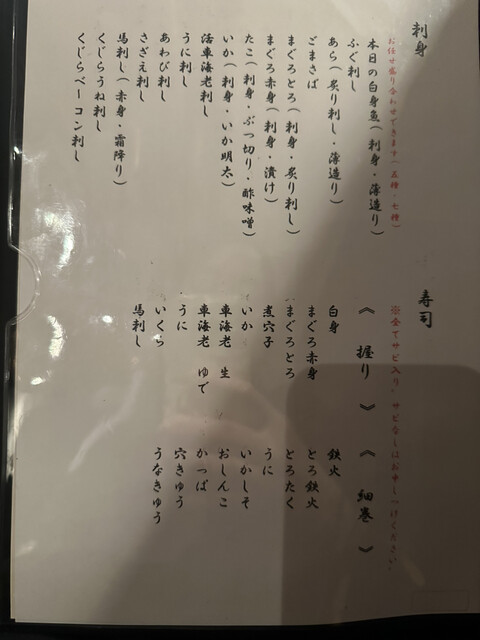 刺身
お任せ盛り合わせできます(五種・七種)
本日の白身魚(刺身・薄造り)
ふぐ刺し
あら(炙り刺し・薄造り)
ごまさば
まぐろとろ(刺身・炙り刺し)
まぐろ赤身(刺身・漬け)
たこ(刺身・ぶつ切り・酢味噌)
いか(刺身・いか明太)
活車海老刺し
うに刺し
あわび刺し
さざえ刺し
馬刺し(赤身・霜降り)
くじらうね刺し
くじらベーコン刺し
寿司
※全てサビ入り、サビなしはお申しつけください。
《 握り 》
白身
まぐろ赤身
まぐろとろ
煮穴子
いか
車海老 生
車海老 ゆで
うに
いくら
馬刺し
《 細巻 》
鉄火
とろ鉄火
とろたく
うに
いかしそ
おしんこ
かっぱ
穴きゅう
うなきゅう